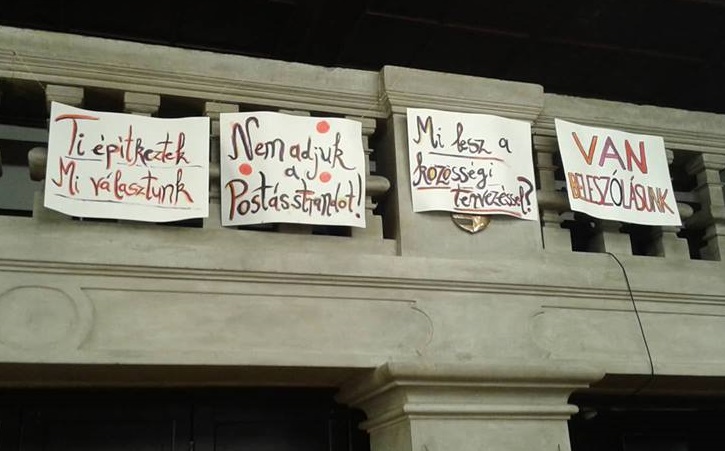 Ti építkeztek
Mi választunk
Nem adjuk
a
Postásstrandot!
Mi lesz a
közösségi
tervezéssel?
VAN
BELESZÓLÁSUNK